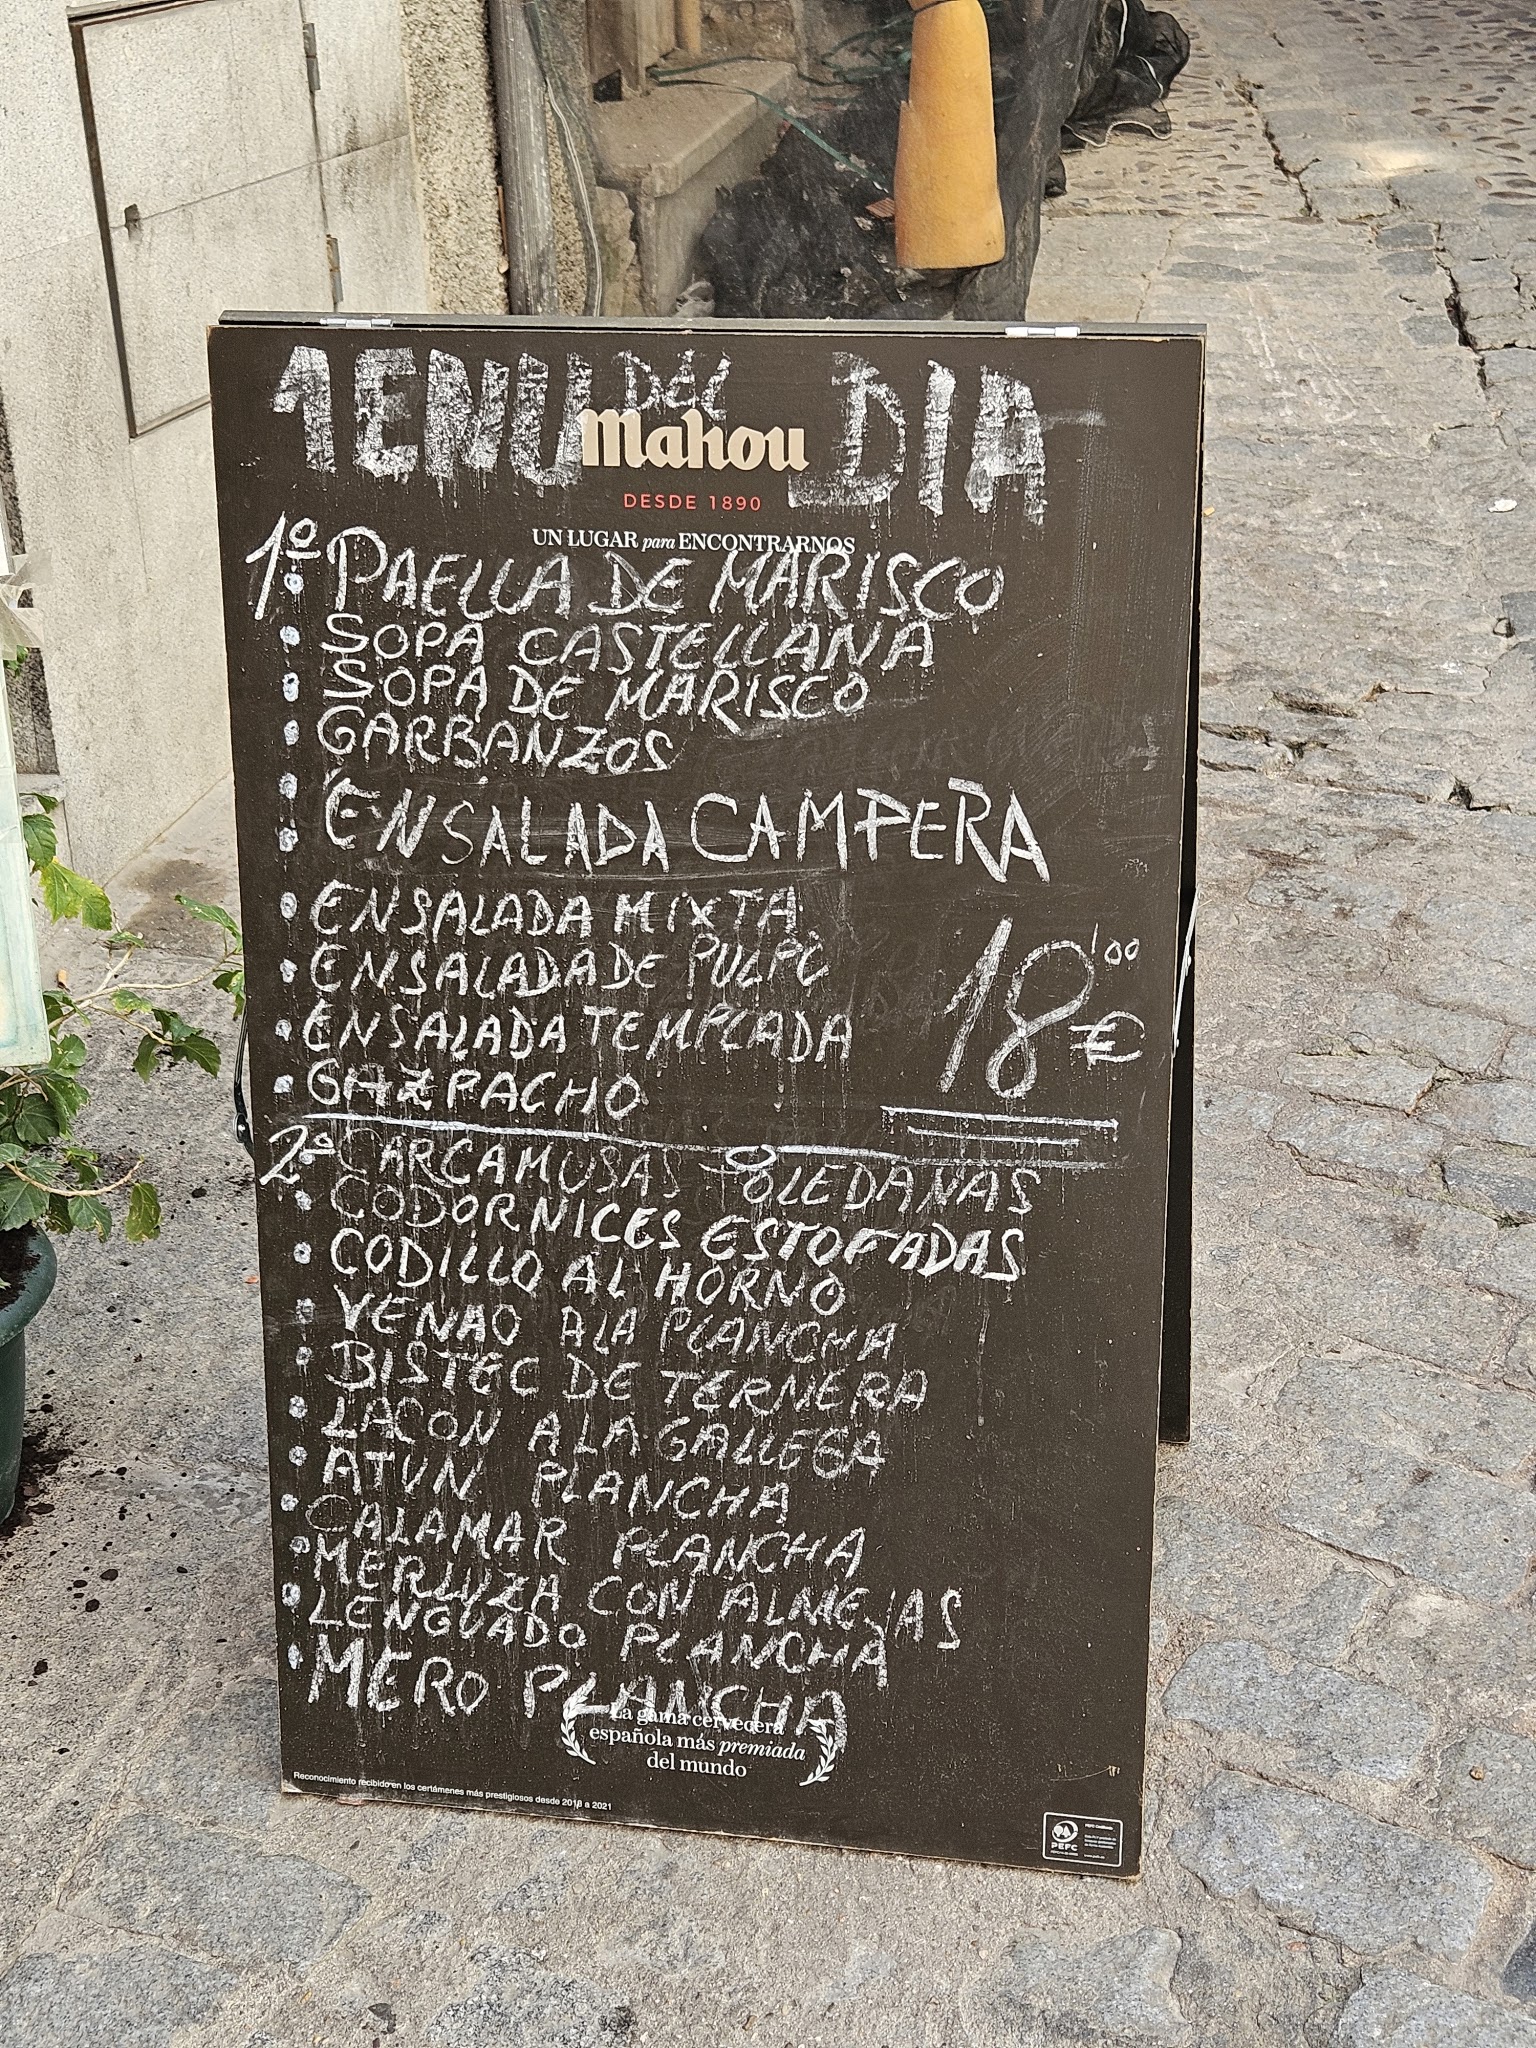 MENU DEL DIA
Mahou
DESDE 1890
UN LUGAR para ENCONTRARNOS
1º PAELLA DE MARISCO
SOPA CASTELLANA
SOPA DE MARISCO
GARBANZOS
ENSALADA CAMPERA
ENSALADA MIXTA
ENSALADA DE PULPO
ENSALADA TEMPLADA
18'00 €
GAZPACHO
2º CARCAMUSAS TOLEDANAS
CODORNICES ESTOFADAS
CODILLO AL HORNO
VENAO A LA PLANCHA
BISTEC DE TERNERA
LACON A LA GALLEGA
ATUN PLANCHA
CALAMAR PLANCHA
MERLUZA CON ALMEJAS
LENGUADO PLANCHA
MERO PLANCHA
La gama cervecera
española más premiada
del mundo
Reconocimiento recibido en los certámenes más prestigiosos desde 2018 a 2021
PEFC